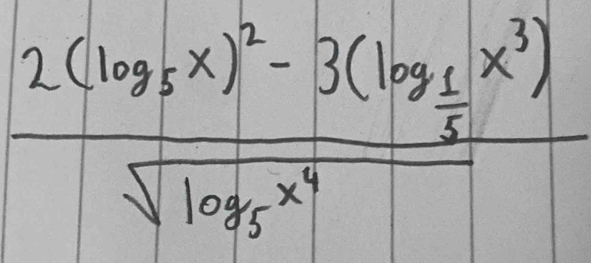 2(log₅x)² - 3(log_{1/5} x³)
√(log₅x⁴)